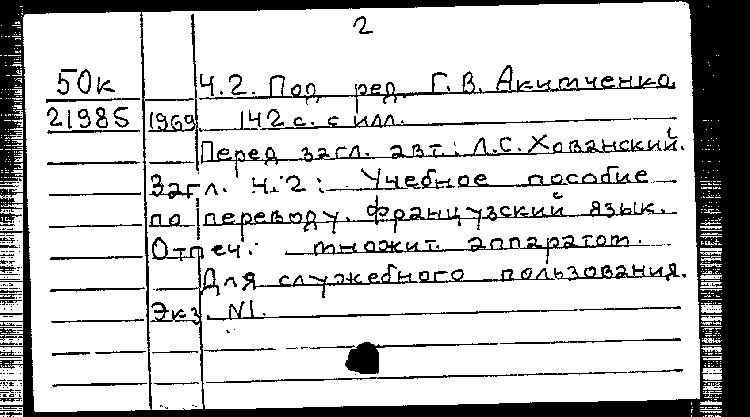 2
50к Ч.2. Под ред. Г.В. Акимченко
21985 1969 142 с. с илл.
Перед загл. авт.: Л.С. Хованский.
Загл. Ч.2: Учебное пособие
по переводу. Французский язык.
Отпеч. множит. аппаратом.
Для служебного пользования.
Экз. N1.